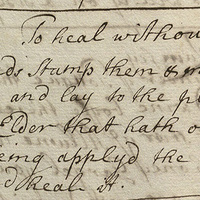 To heal withou
ds stamp them &
and lay to the p
Elder that hath o
eing applyd the
d heal it.